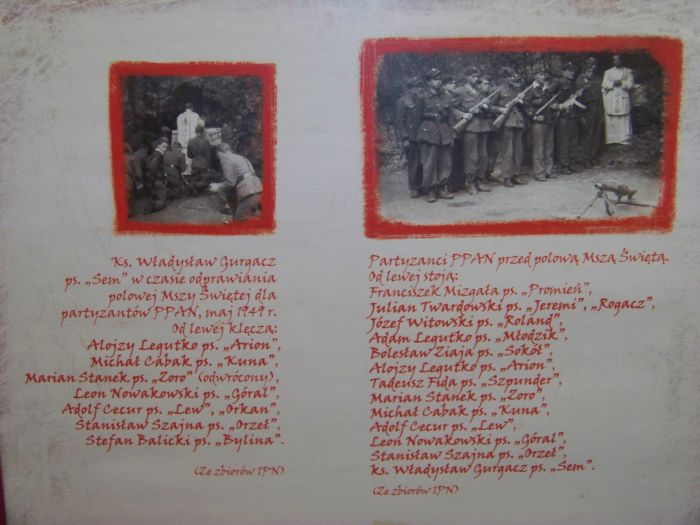 Ks. Władysław Gurgacz
ps. „Sem” w czasie odprawiania
polowej Mszy Świętej dla
partyzantów PPAN, maj 1949 r.
Od lewej klęczą:
Alojzy Legutko ps. „Arion”,
Michał Cabak ps. „Kuna”,
Marian Stanek ps. „Zoro” (odwrócony),
Leon Nowakowski ps. „Góral”,
Adolf Cecur ps. „Lew”, „Orkan”,
Stanisław Szajna ps. „Orzeł”,
Stefan Balicki ps. „Bylina”.
(Ze zbiorów IPN)
Partyzanci PPAN przed polową Mszą Świętą.
Od lewej stoją:
Franciszek Mizgała ps. „Promień”,
Julian Twardowski ps. „Jeremi”, „Rogacz”,
Józef Witowski ps. „Roland”,
Adam Legutko ps. „Młodzik”,
Bolesław Ziaja ps. „Sokół”,
Alojzy Legutko ps. „Arion”,
Tadeusz Fida ps. „Szpunder”,
Marian Stanek ps. „Zoro”,
Michał Cabak ps. „Kuna”,
Adolf Cecur ps. „Lew”,
Leon Nowakowski ps. „Góral”,
Stanisław Szajna ps. „Orzeł”,
ks. Władysław Gurgacz ps. „Sem”.
(Ze zbiorów IPN)